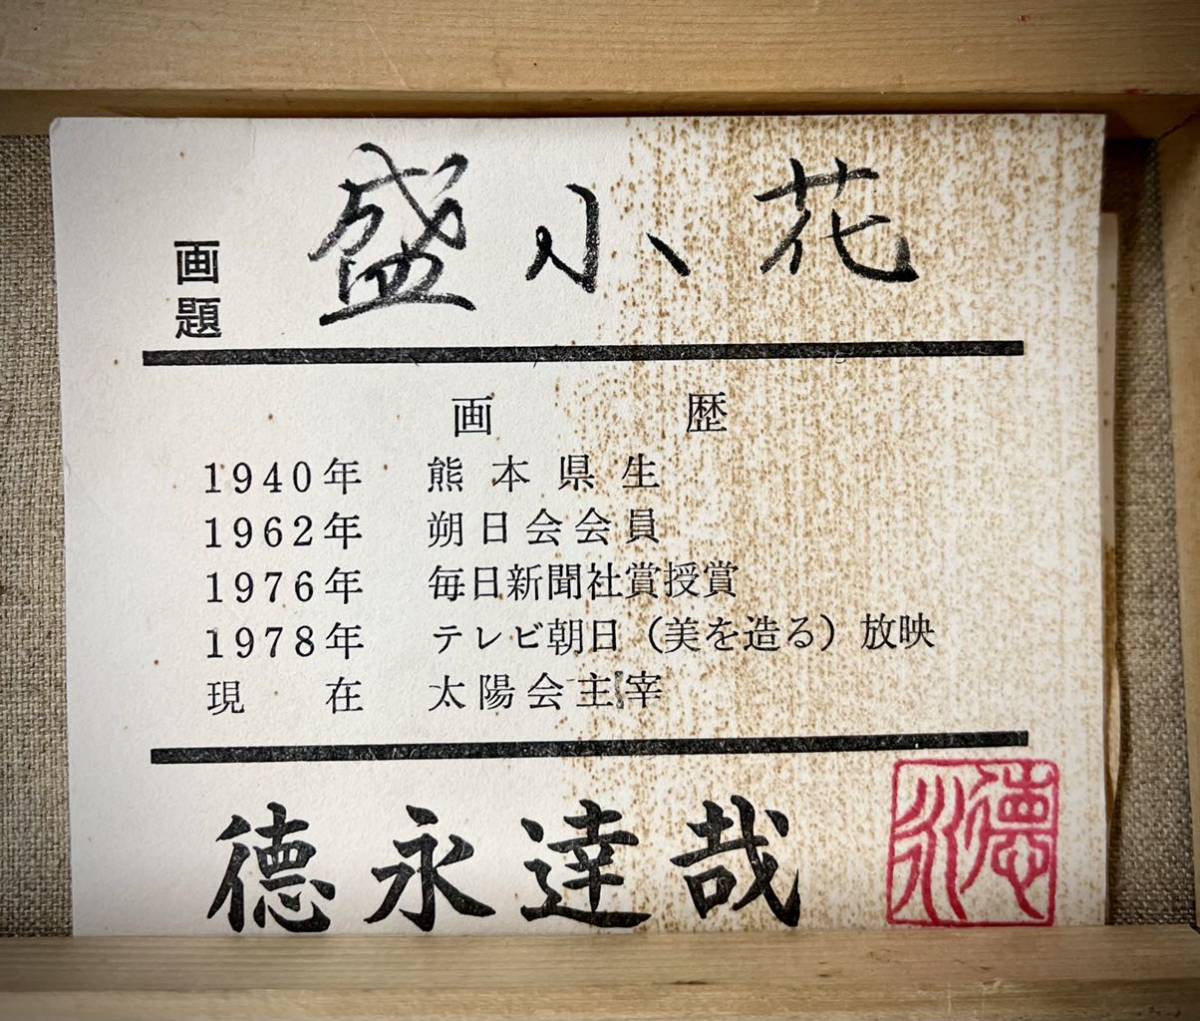 画題
盛小花
画歴
1940年 熊本県生
1962年 朔日会会員
1976年 毎日新聞社賞授賞
1978年 テレビ朝日（美を造る）放映
現在 太陽会主宰
徳永達哉
徳永